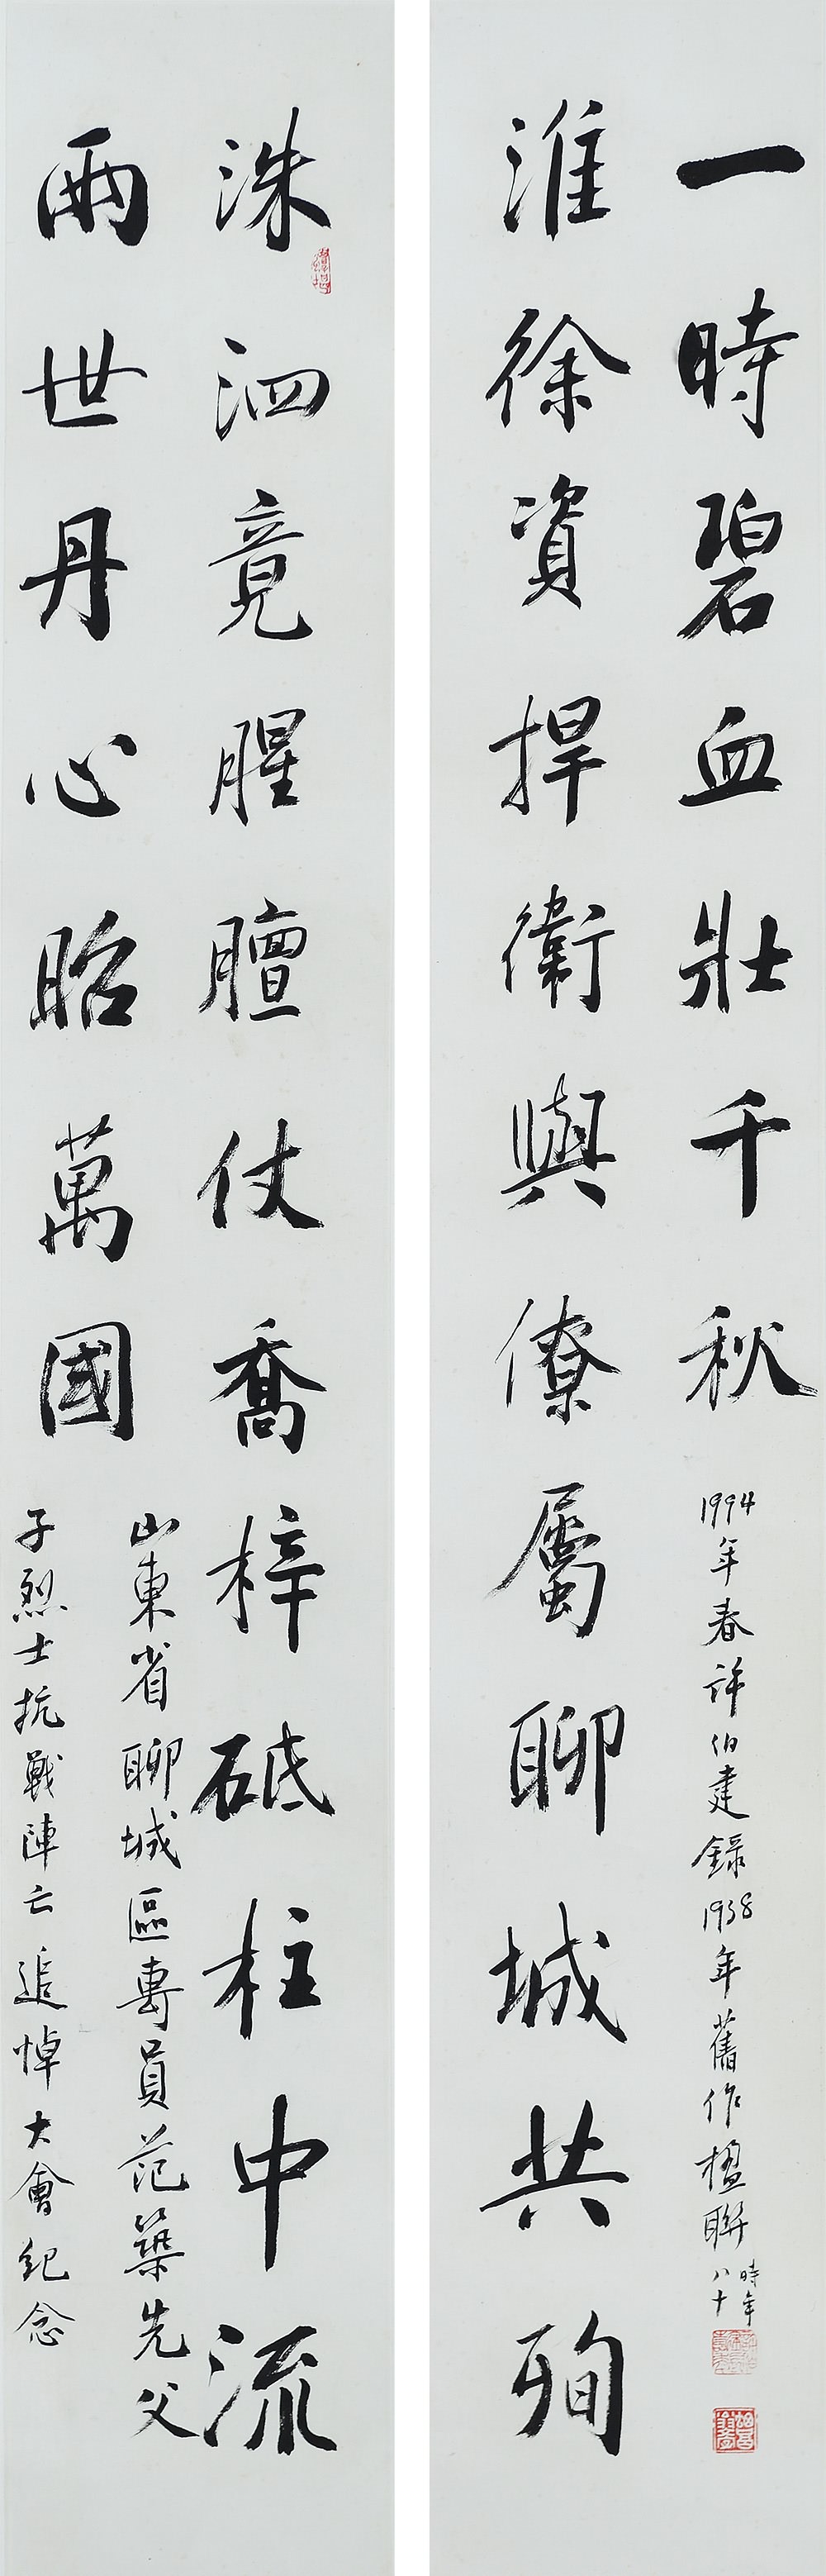 洙泗竟腥膻仗喬梓砥柱中流
兩世丹心昭萬國
山東省聊城區專員范築先父
子烈士抗戰陣亡追悼大會紀念
淮徐資捍衛與僚屬聊城共殉
一時碧血壯千秋
1994年春許伯建錄1938年舊作楹聯時年八十